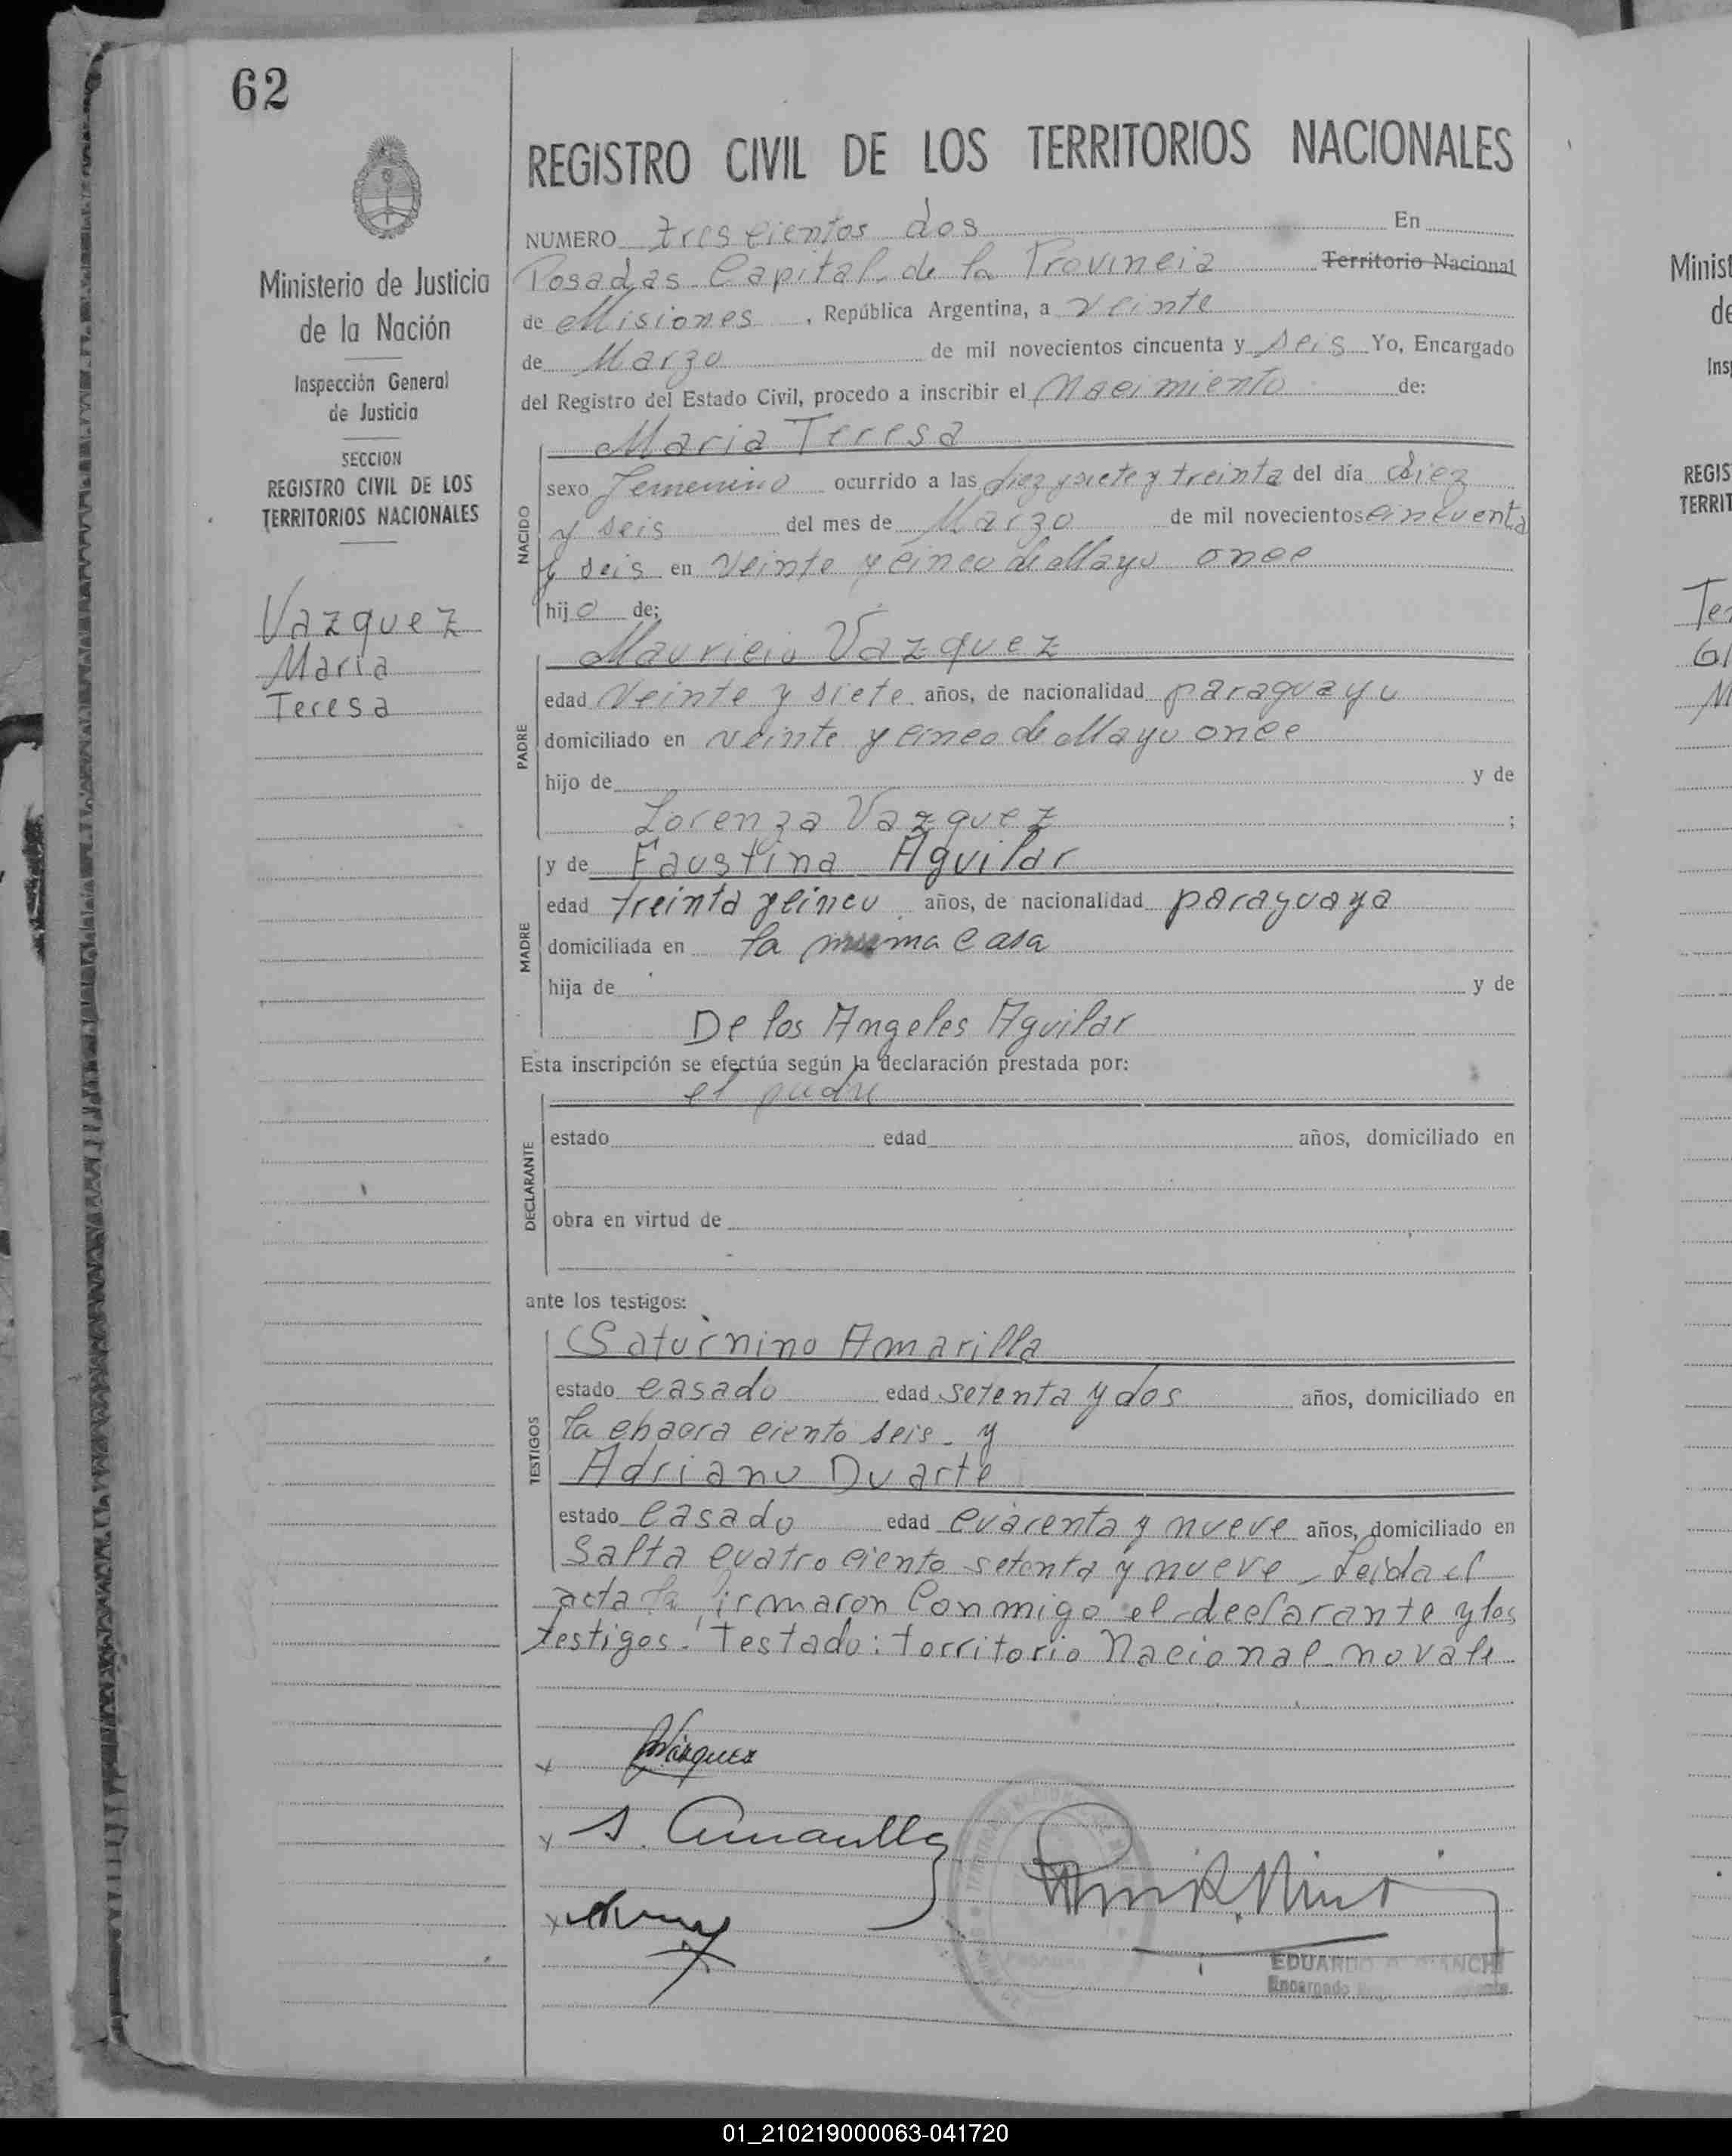 62
REGISTRO CIVIL DE LOS TERRITORIOS NACIONALES
Ministerio de Justicia
de la Nación
Inspección General
de Justicia
SECCION
REGISTRO CIVIL DE LOS
TERRITORIOS NACIONALES
Vazquez
Maria
Teresa
NUMERO trescientos dos En
Posadas Capital de la Provincia Territorio Nacional
de Misiones, República Argentina, a veinte
de Marzo de mil novecientos cincuenta y seis Yo, Encargado
del Registro del Estado Civil, procedo a inscribir el Nacimiento de:
NACIDO
Maria Teresa
sexo femenino ocurrido a las diez y siete y treinta del día diez
y seis del mes de Marzo de mil novecientos cincuenta
y seis en veinte y cinco de Mayo once
hijo de;
PADRE
Mauricio Vazquez
edad veinte y siete años, de nacionalidad paraguayo
domiciliado en veinte y cinco de Mayo once
hijo de y de
Lorenza Vazquez ;
MADRE
y de Faustina Aguilar
edad treinta y cinco años, de nacionalidad paraguaya
domiciliada en la misma casa
hija de y de
De los Angeles Aguilar
Esta inscripción se efectúa según la declaración prestada por:
DECLARANTE
el padre
estado edad años, domiciliado en
obra en virtud de
ante los testigos:
TESTIGOS
Saturnino Amarilla
estado casado edad setenta y dos años, domiciliado en
la chacra ciento seis - y
Adriano Duarte
estado casado edad cuarenta y nueve años, domiciliado en
Salta cuatro ciento setenta y nueve - Leida el
acta la firmaron conmigo el declarante y los
testigos. Testado: territorio Nacional no vale
Vázquez
S. Amarilla
EDUARDO BIANCHI
Encargado
Minist
de
Ins
REGIS
TERRIT
Te
Gl
M
01_210219000063-041720